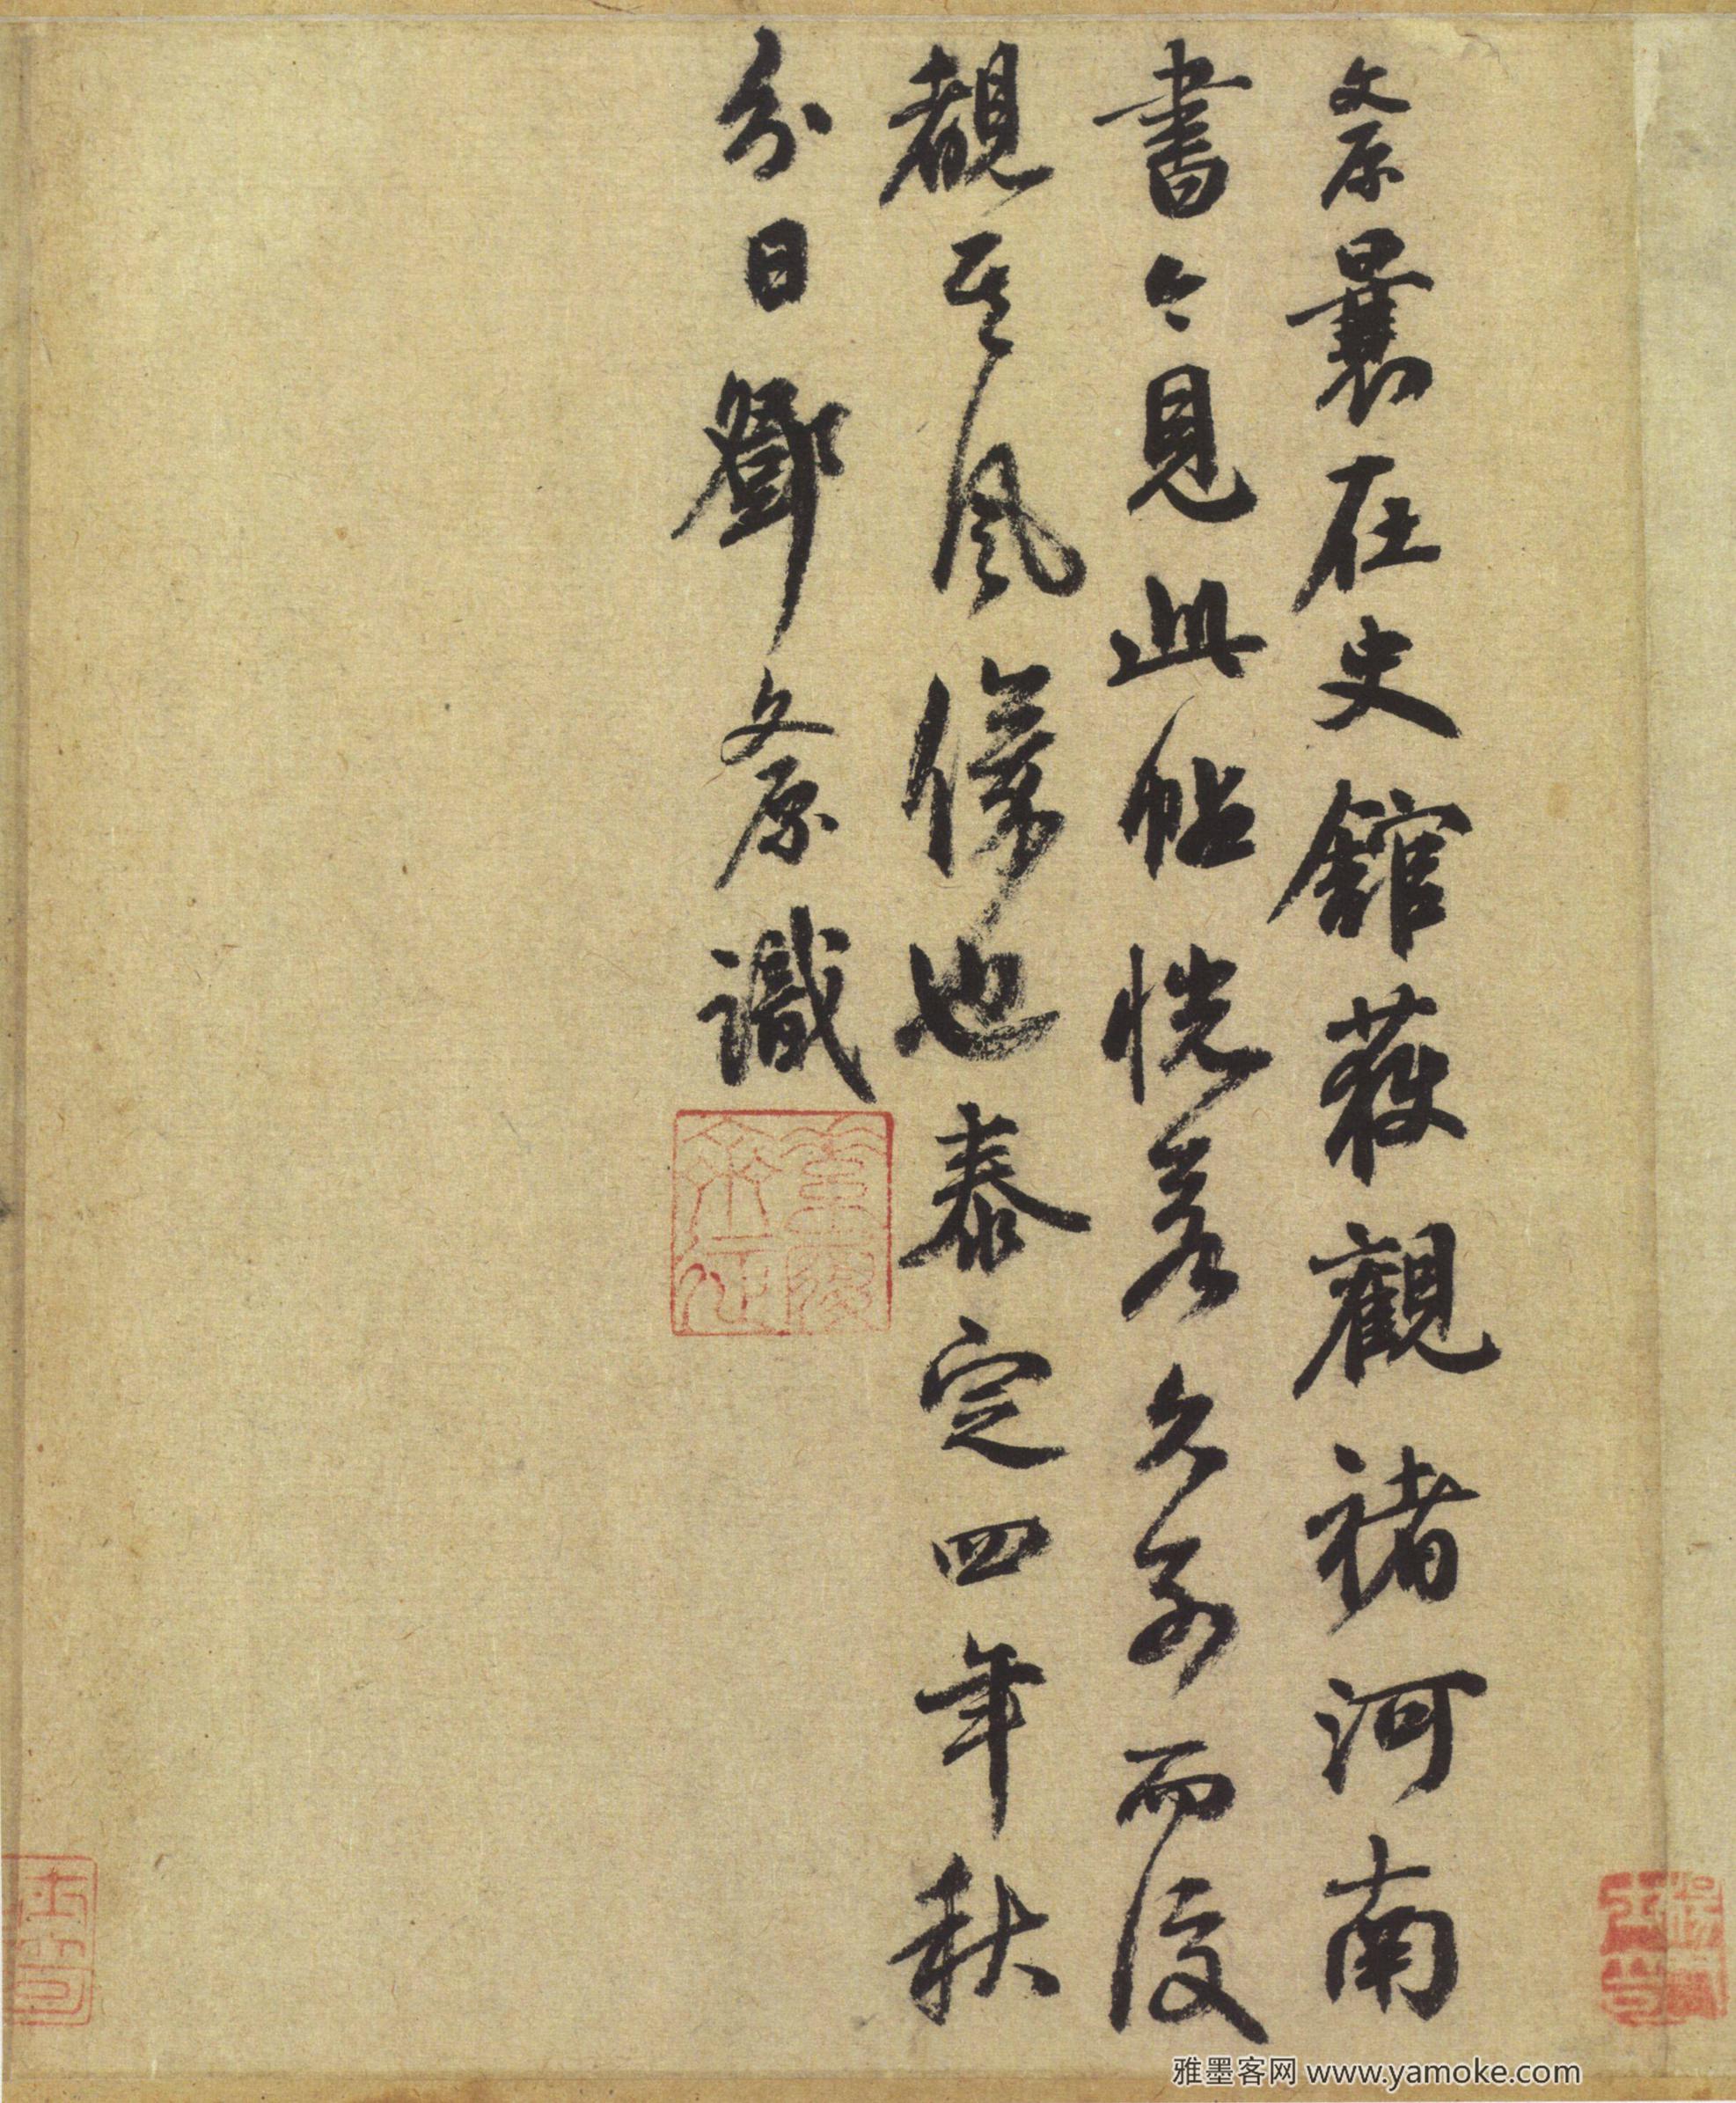 文原曩在史館獲觀褚河南
書今見此帖恍若久別而復
覩其風儀也泰定四年秋
分日鄧文原識
雅墨客网 www.yamoke.com